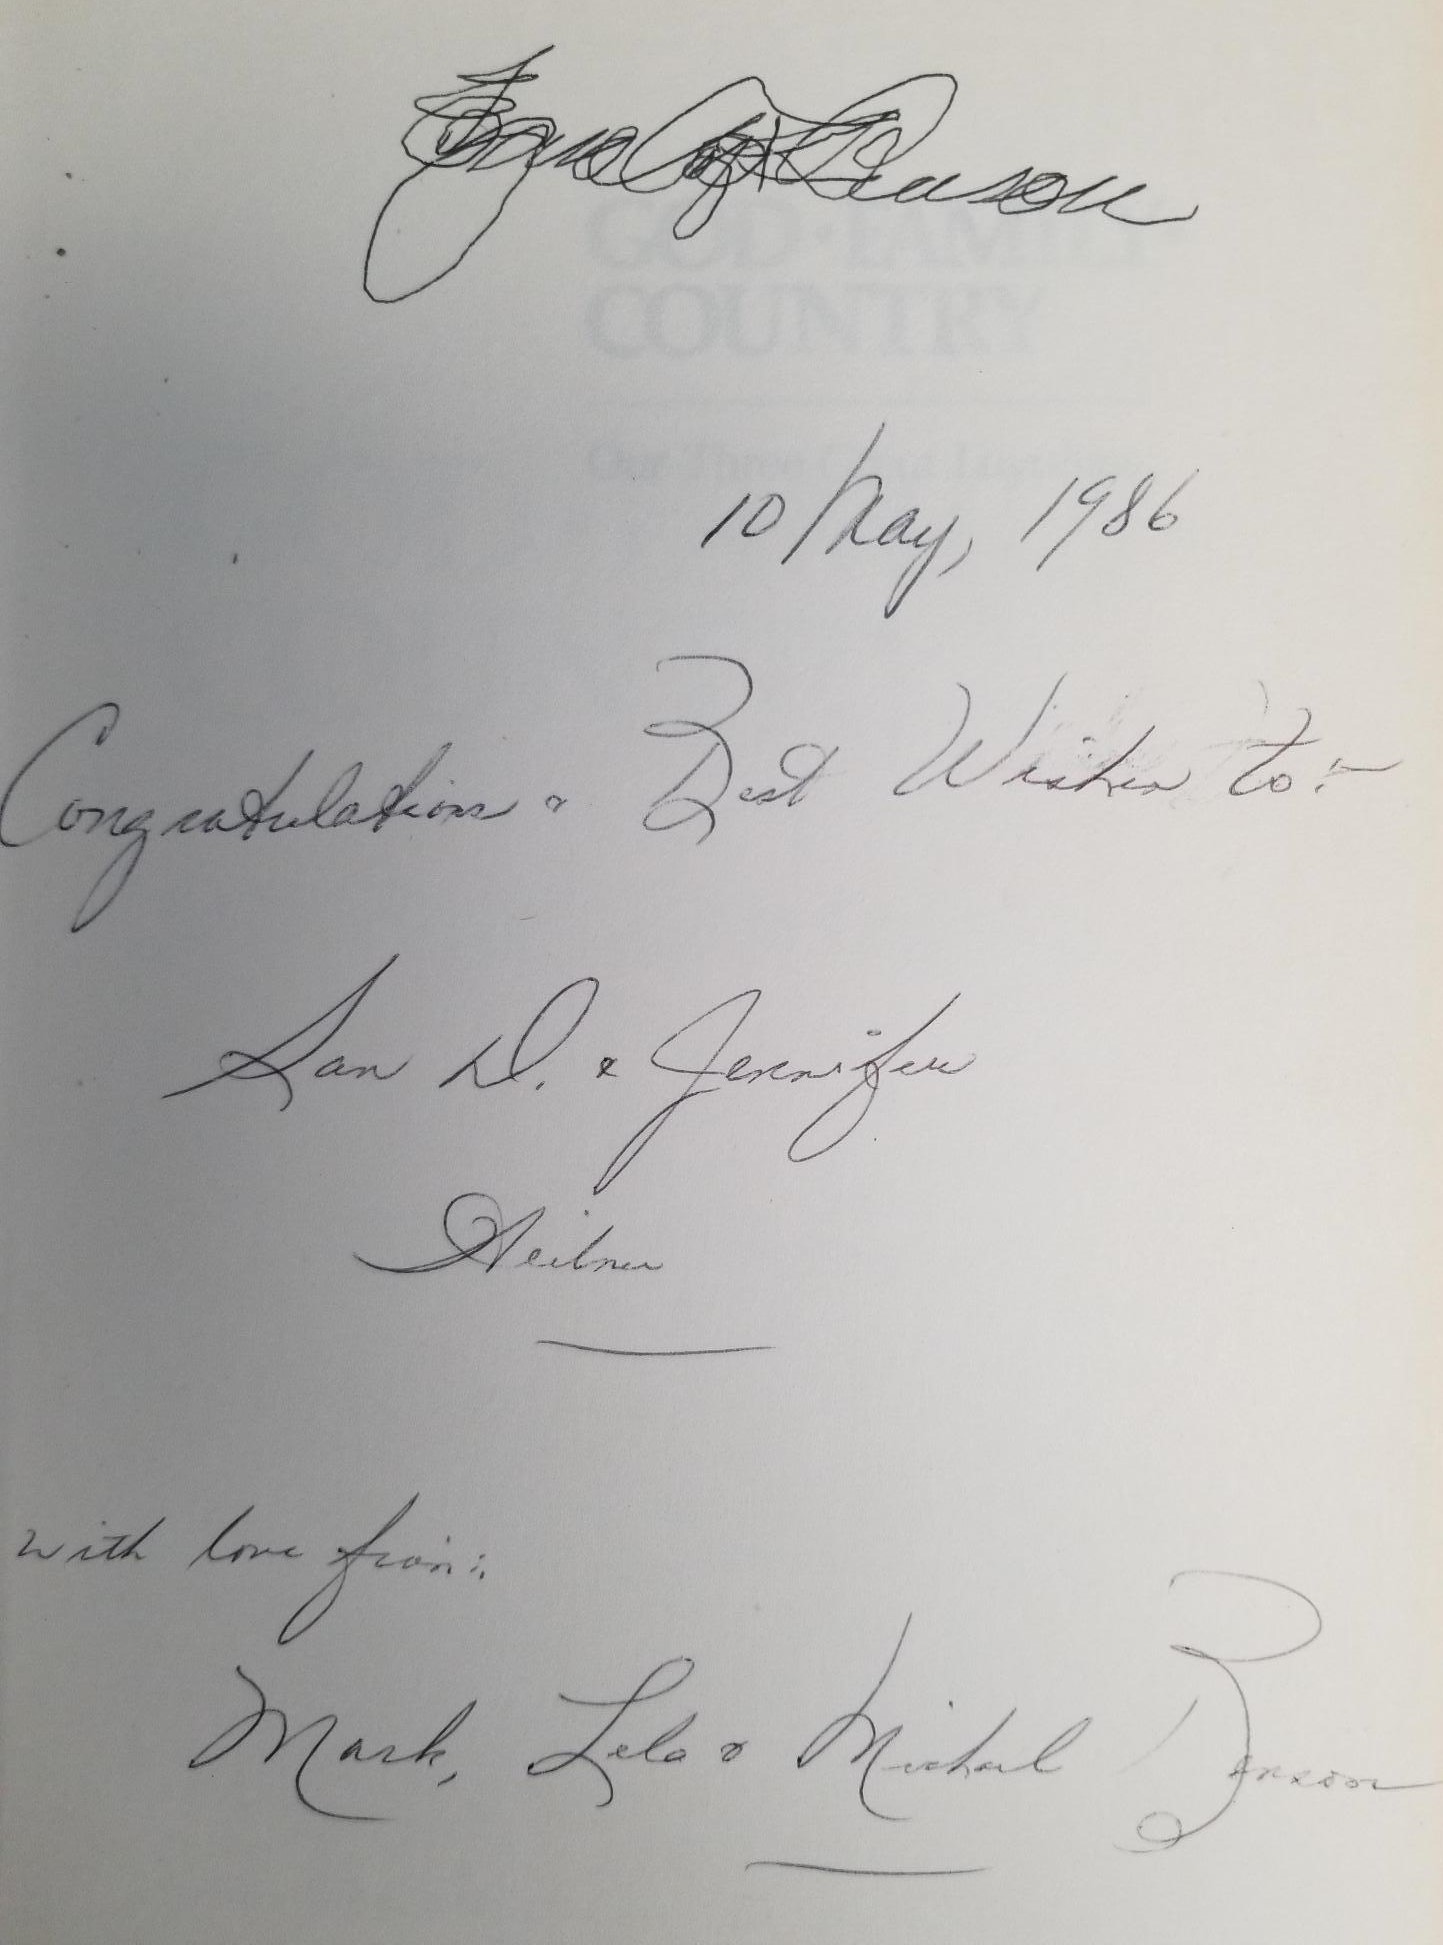 GOD · FAMILY
COUNTRY
Our Three Great Loyalties
10 May, 1986
Congratulations & Best Wishes to:-
D. & Jennifer
with love from:
Mark, Lela & Michael Benson